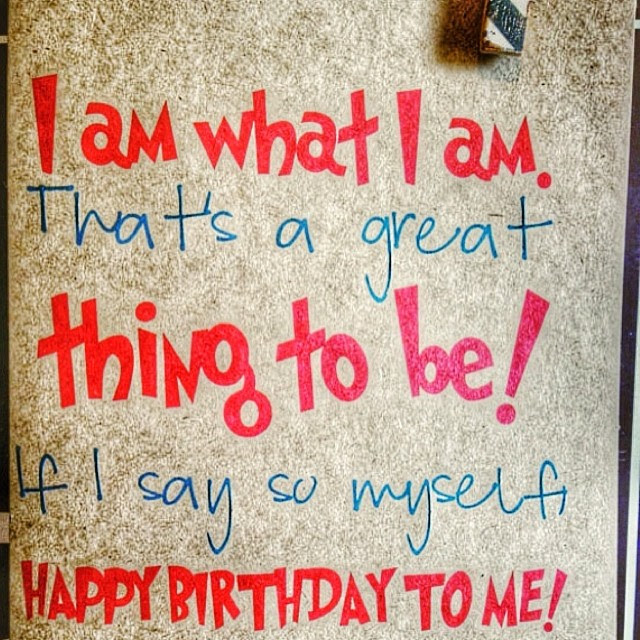 I am what I am.
That's a great
thing to be!
If I say so myself,
HAPPY BIRTHDAY TO ME!